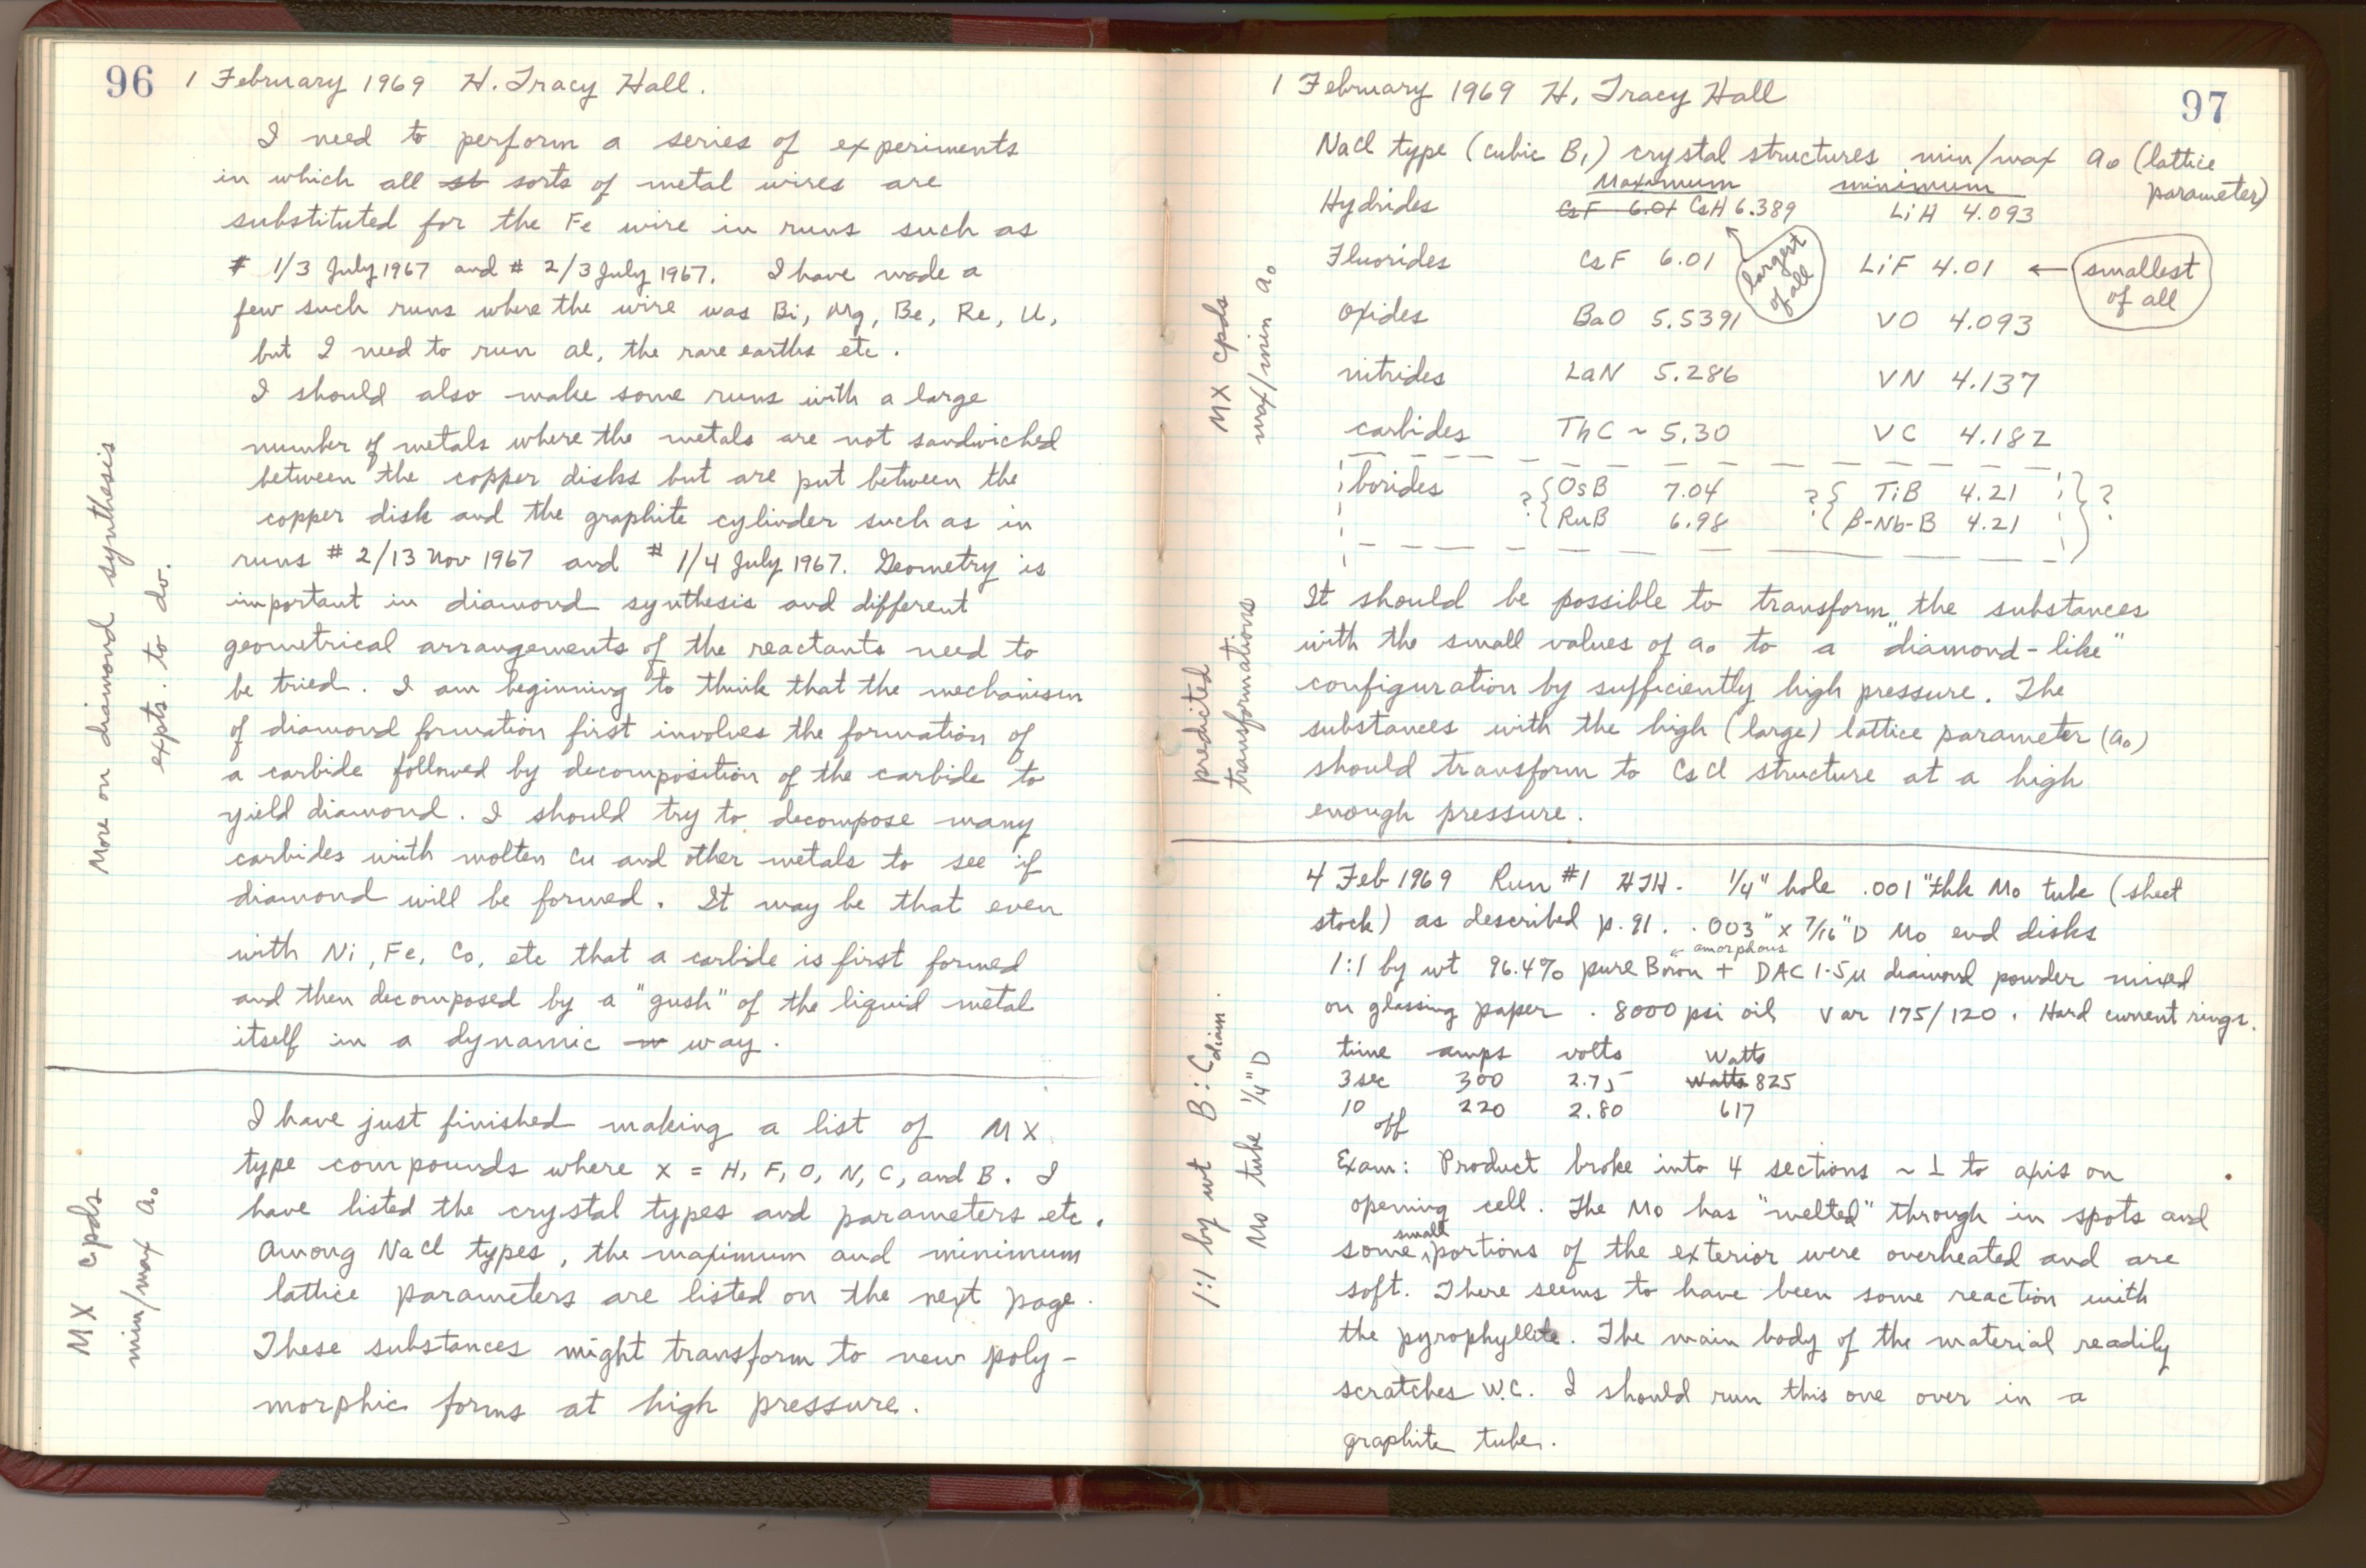 96 1 February 1969 H. Tracy Hall.
I need to perform a series of experiments
in which all st sorts of metal wires are
substituted for the Fe wire in runs such as
# 1/3 July 1967 and # 2/3 July 1967. I have made a
few such runs where the wire was Bi, Mg, Be, Re, U,
but I need to run al, the rare earths etc.
I should also make some runs with a large
number of metals where the metals are not sandwiched
between the copper disks but are put between the
copper disk and the graphite cylinder such as in
runs # 2/13 Nov 1967 and # 1/4 July 1967. Geometry is
important in diamond synthesis and different
geometrical arrangements of the reactants need to
be tried. I am beginning to think that the mechanism
of diamond formation first involves the formation of
a carbide followed by decomposition of the carbide to
yield diamond. I should try to decompose many
carbides with molten Cu and other metals to see if
diamond will be formed. It may be that even
with Ni, Fe, Co, etc that a carbide is first formed
and then decomposed by a "gush" of the liquid metal
itself in a dynamic w way.
More on diamond synthesis
expts. to do.
I have just finished making a list of MX
type compounds where X = H, F, O, N, C, and B. I
have listed the crystal types and parameters etc.
Among NaCl types, the maximum and minimum
lattice parameters are listed on the next page.
These substances might transform to new poly-
morphic forms at high pressure.
MX cpds
min/max a₀
1 February 1969 H. Tracy Hall 97
NaCl type (cubic B₁) crystal structures min/max a₀ (lattice
parameter)
Maximum minimum
Hydrides CsF 6.01 CsH 6.389 LiH 4.093
Fluorides CsF 6.01 largest of all LiF 4.01 ← smallest of all
oxides BaO 5.5391 VO 4.093
nitrides LaN 5.286 VN 4.137
carbides ThC ~ 5.30 VC 4.182
borides ?{ OsB 7.04 ?{ TiB 4.21 } ?
RuB 6.98 β-Nb-B 4.21
MX cpds
max/min a₀
It should be possible to transform the substances
with the small values of a₀ to a "diamond-like"
configuration by sufficiently high pressure. The
substances with the high (large) lattice parameter (a₀)
should transform to CsCl structure at a high
enough pressure.
predicted
transformations
4 Feb 1969 Run #1 HTH. 1/4" hole .001" thk Mo tube (sheet
stock) as described p. 91. .003" x 7/16" D Mo end disks
← amorphous
1:1 by wt 96.4% pure Boron + DAC 1-5μ diamond powder mixed
on glassing paper. 8000 psi oil Var 175/120. Hard current rings.
time amps volts Watts
3 sec 300 2.75 Watts 825
10 220 2.80 617
off
Exam: Product broke into 4 sections ~ ⊥ to axis on
opening cell. The Mo has "melted" through in spots and
some small portions of the exterior were overheated and are
soft. There seems to have been some reaction with
the pyrophyllite. The main body of the material readily
scratches W.C. I should run this one over in a
graphite tube.
1:1 by wt B:C diam.
Mo tube 1/4" D